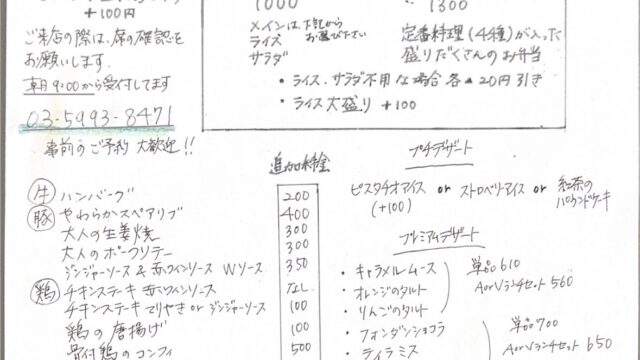 +100円
ご来店の際は、席の確認を
お願いします。
朝9:00から受付してます
03-5993-8471
事前のご予約 大歓迎!!
1000
1300
メインは、下記から
お選び下さい
ライス
サラダ
定番料理(4種)が入った
盛りだくさんのお弁当
・ライス、サラダ不用な場合 各▲20円引き
・ライス大盛り +100
追加料金
牛 ハンバーグ 200
豚 やわらかスペアリブ 400
大人の生姜焼 300
大人のポークソテー 300
ジンジャーソース & 赤ワインソース Wソース 350
鶏 チキンステーキ 赤ワインソース なし
チキンステーキ てりやき or ジンジャーソース 100
鶏の唐揚げ 100
骨付鶏のコンフィ 500
プチデザート
ピスタチオアイス or ストロベリーアイス or 紅茶の
(+100)
パウンドケーキ
プレミアムデザート
・キャラメルムース
・オレンジのタルト
・りんごのタルト
単品610
AorVランチセット 560
・フォンダンショコラ
・ティラミス
単品700
AorVランチセット650